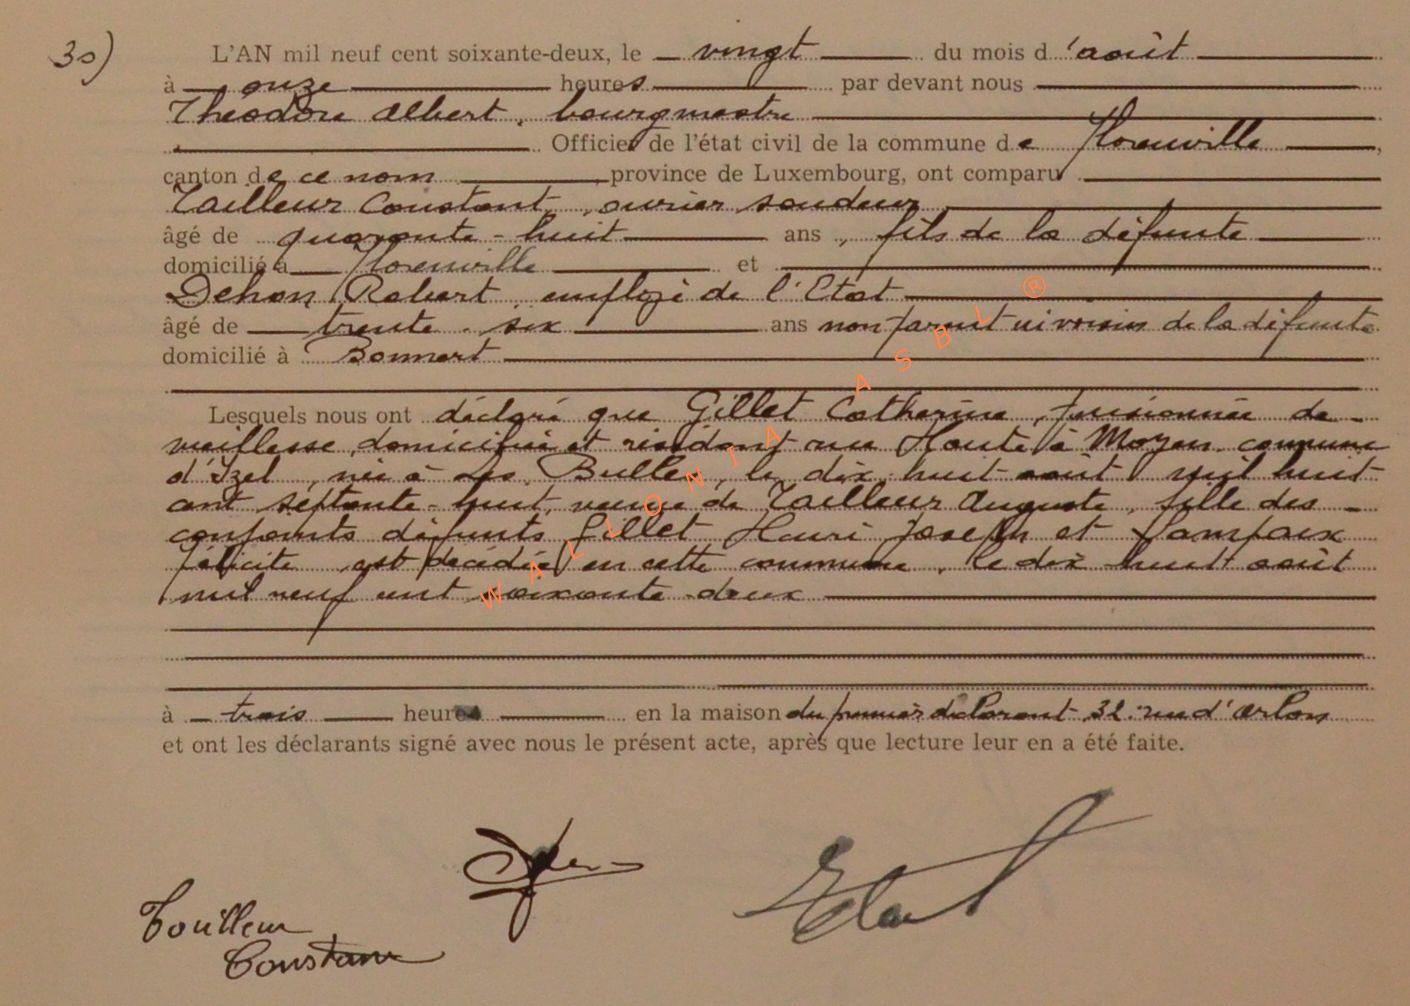 30) L'AN mil neuf cent soixante-deux, le vingt du mois d'août
à onze heures par devant nous
Théodore Albert, bourgmestre
Officier de l'état civil de la commune de Florenville,
canton de ce nom province de Luxembourg, ont comparu
Tailleur Constant, ouvrier soudeur
âgé de quarante-huit ans, fils de la défunte
domicilié à Florenville et
Dehon Robert, employé de l'Etat
âgé de trente-six ans non parent ni voisin de la défunte
domicilié à Bonnert
Lesquels nous ont déclaré que Gillet Catherine, pensionnée de
vieillesse, domiciliée et résidant rue Haute à Moyen commune
d'Izel, née à Les Bulles, le dix huit août mil huit
cent septante-huit, veuve de Tailleur Auguste, fille des
conjoints défunts Gillet Henri Joseph et Lampaix
Félicité est décédée en cette commune, le dix huit août
mil neuf cent soixante-deux
à trois heures en la maison du premier déclarant 32 rue d'Arlon
et ont les déclarants signé avec nous le présent acte, après que lecture leur en a été faite.
Tailleur
Constant
WALLONIA ASBL ®